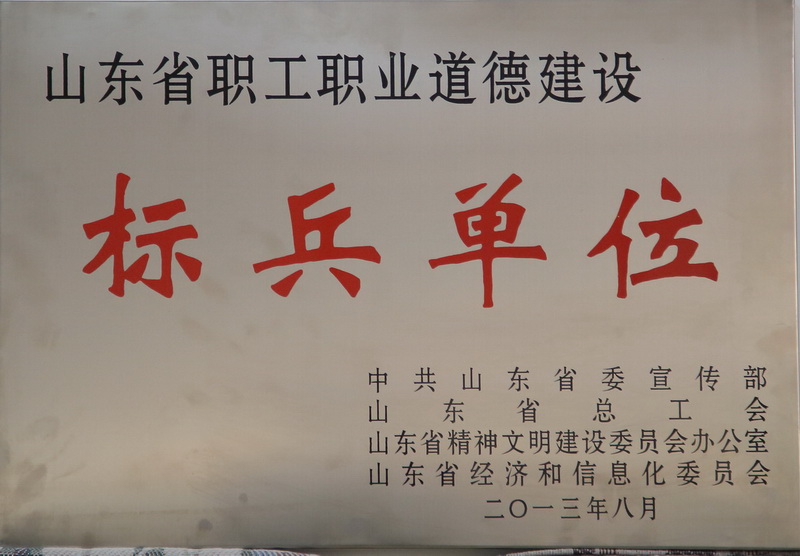 山东省职工职业道德建设
标兵单位
中共山东省委宣传部
山东省总工会
山东省精神文明建设委员会办公室
山东省经济和信息化委员会
二〇一三年八月